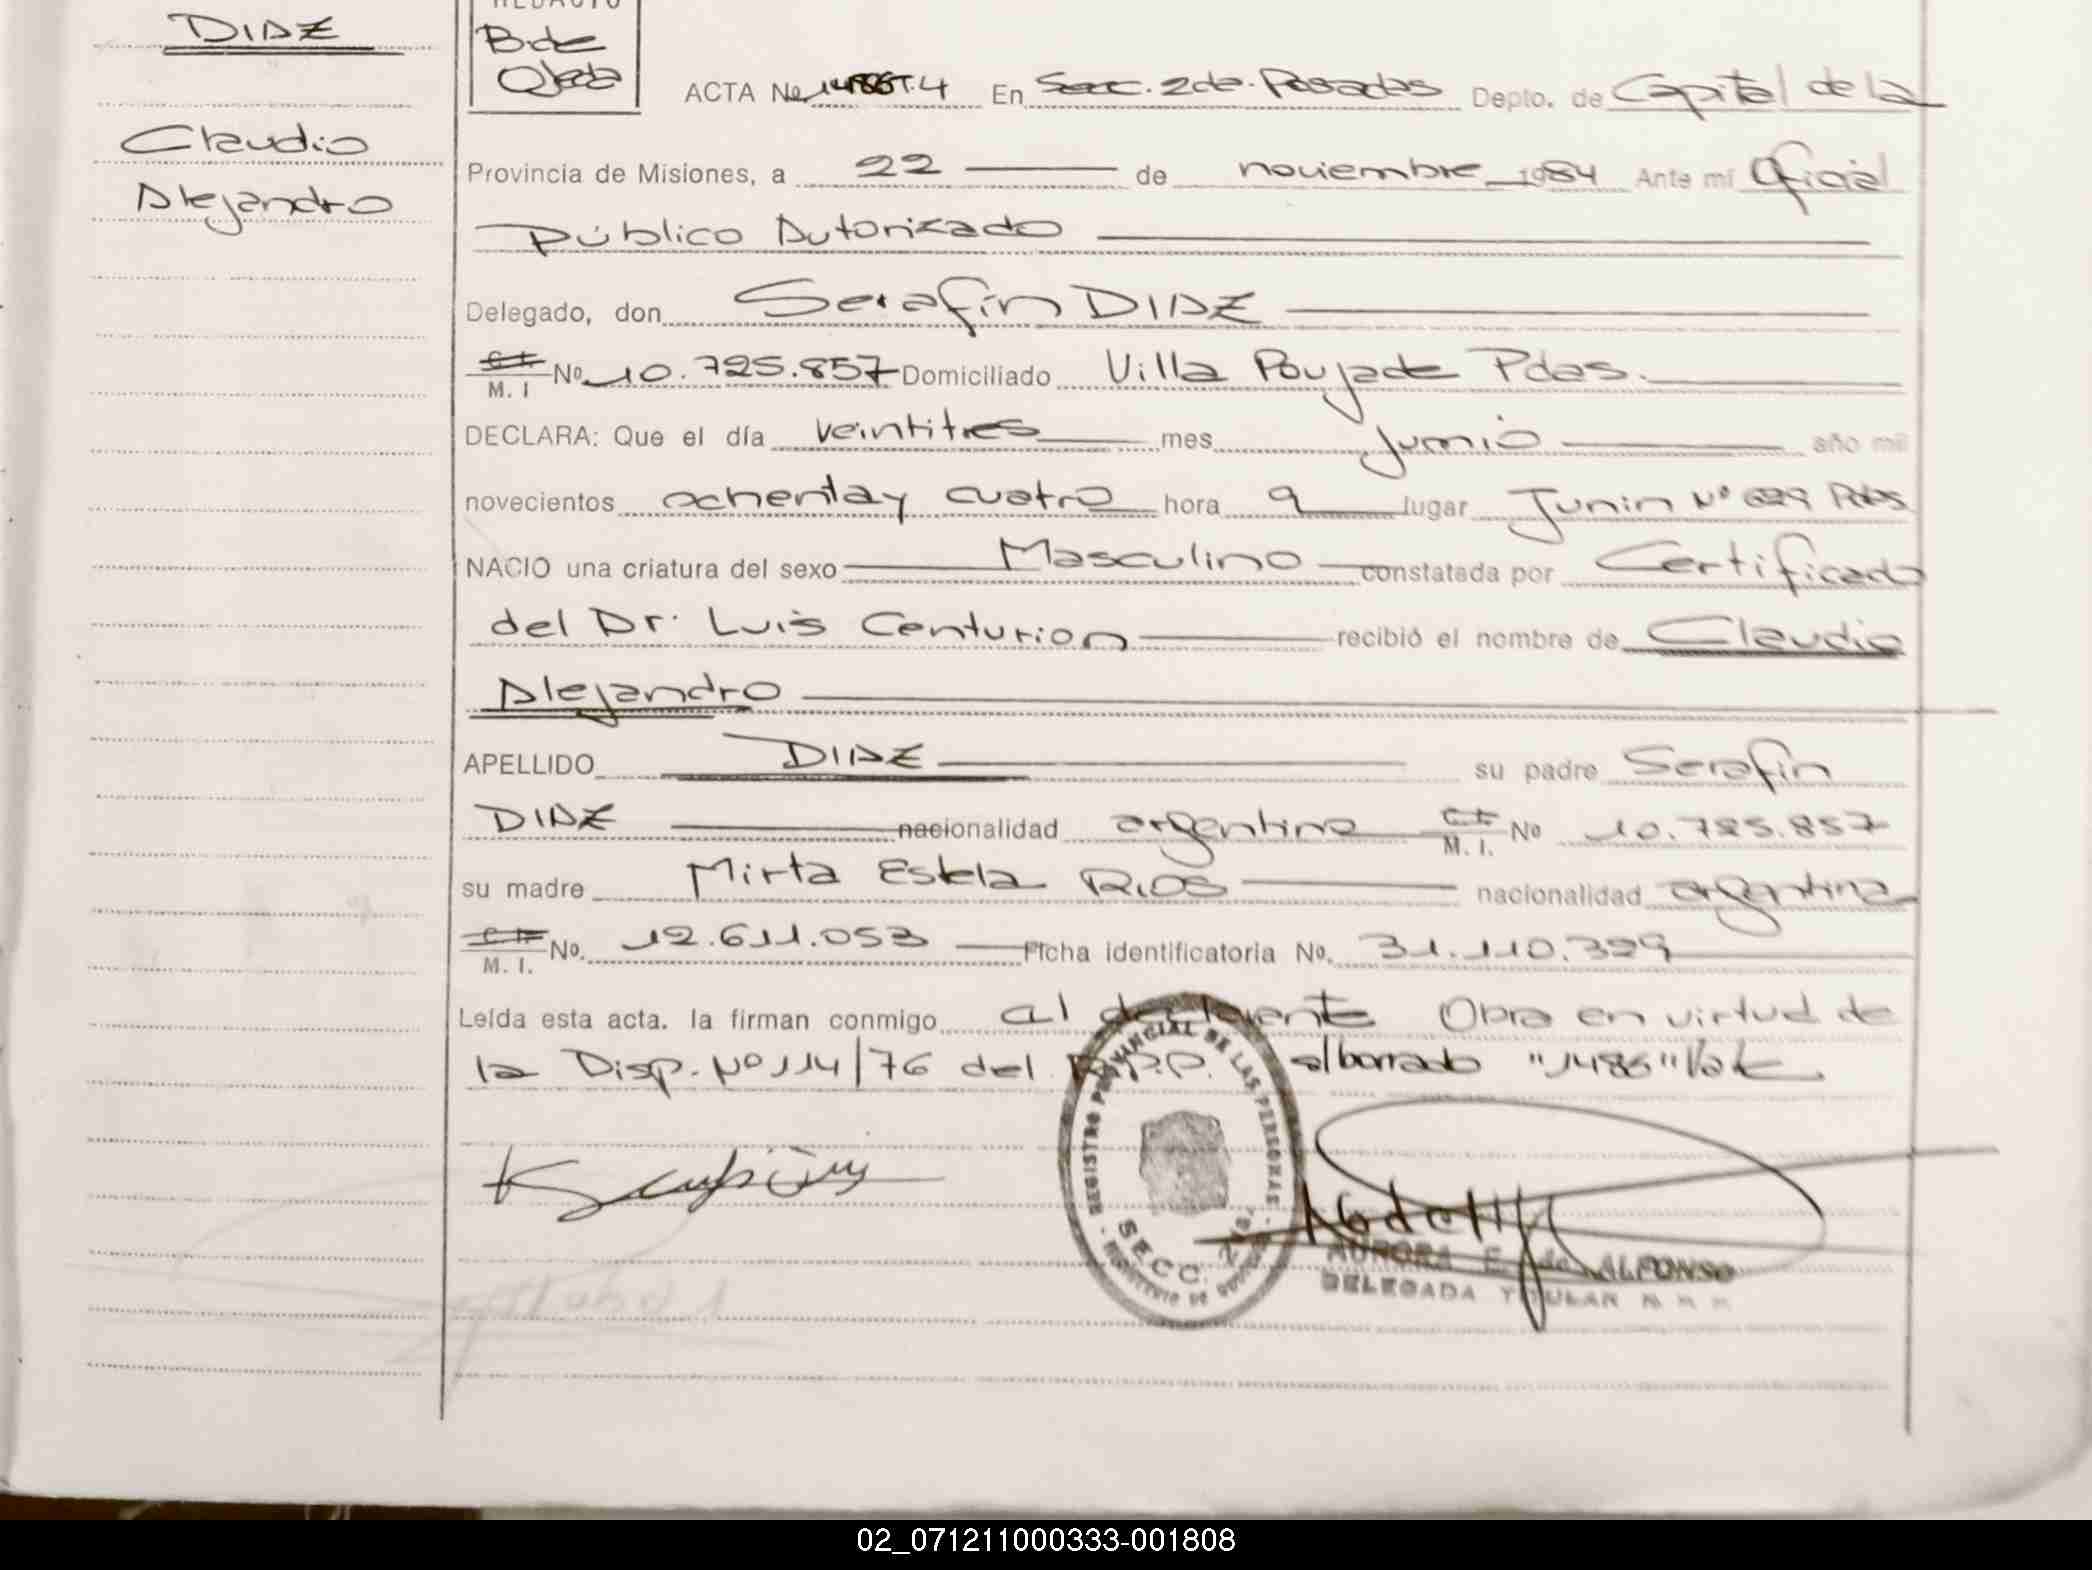 DIAZ
Claudio
Alejandro
REDACTO
B. de
Ojeda
ACTA No 1486T.4 En Secc. 2da. Posadas Depto. de Capital de la
Provincia de Misiones, a 22 de noviembre 1984 Ante mí Oficial
Público Autorizado
Delegado, don Serafin DIAZ
C. I.
M. I No 10.725.857 Domiciliado Villa Poujade Pdas.
DECLARA: Que el día veintitres mes junio año mil
novecientos ochenta y cuatro hora 9 lugar Junin Nº 629 Pdas
NACIO una criatura del sexo Masculino constatada por Certificado
del Dr. Luis Centurion recibió el nombre de Claudio
Alejandro
APELLIDO DIAZ su padre Serafin
DIAZ nacionalidad argentino C. I. M. I. No 10.725.857
su madre Mirta Estela RIOS nacionalidad argentina
C. I. M. I. No. 12.611.053 Ficha identificatoria No. 31.110.329
Leída esta acta. la firman conmigo al declarante Obra en virtud de
la Disp. Nº 114/76 del R.P.P. s/borrado "1486" Vale
REGISTRO PROVINCIAL DE LAS PERSONAS
SECC. 2da.
AURORA E. de ALFONSO
DELEGADA TITULAR
02_071211000333-001808